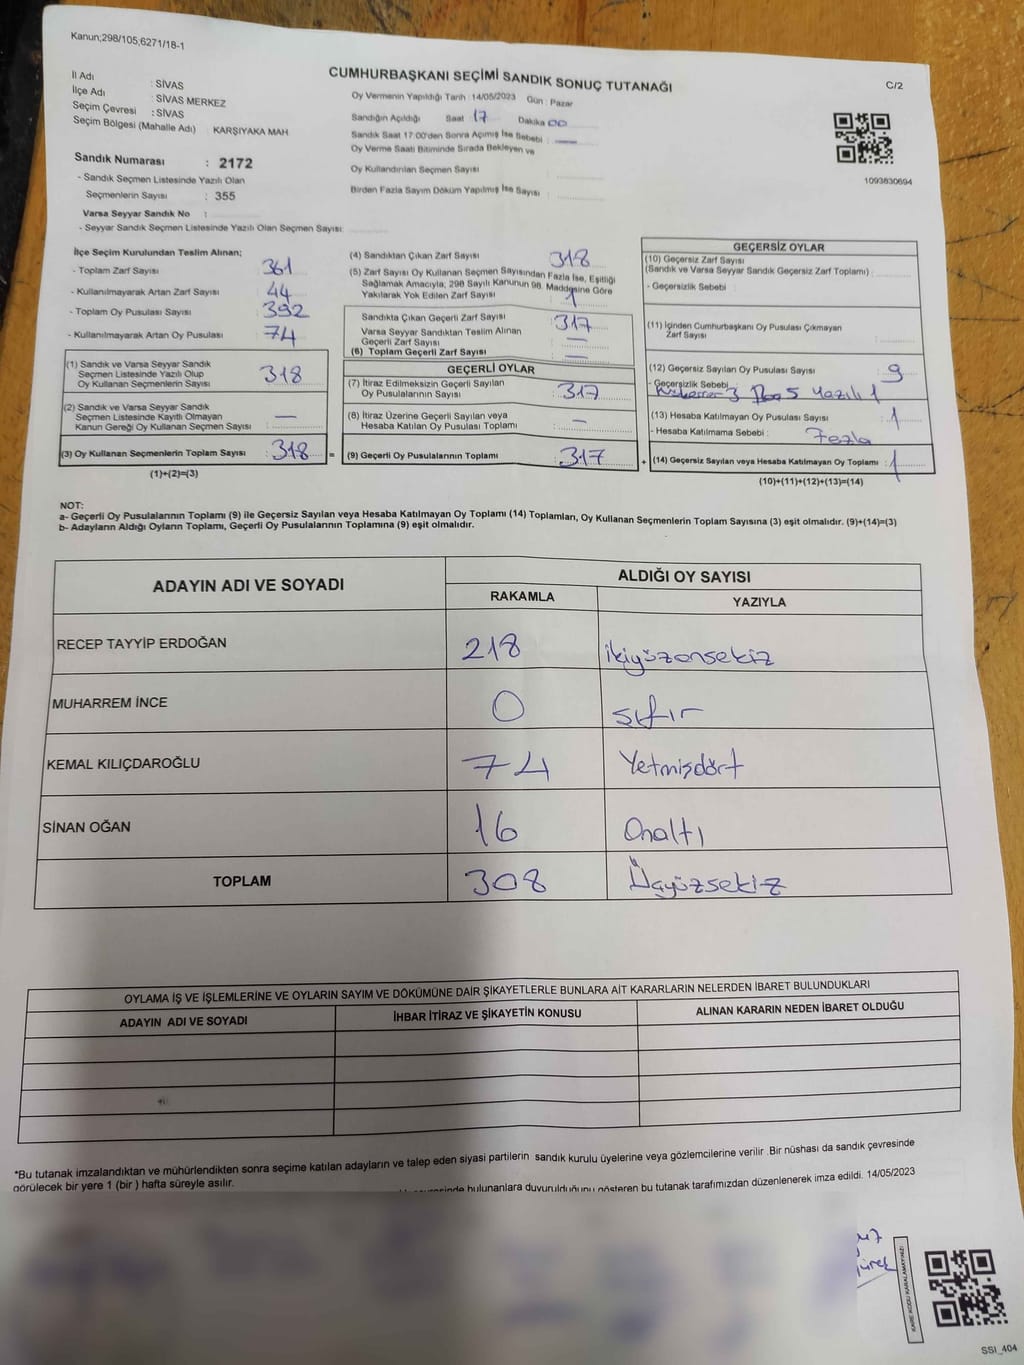 Kanun;298/105,6271/18-1
CUMHURBAŞKANI SEÇİMİ SANDIK SONUÇ TUTANAĞI
C/2
İl Adı : SİVAS
İlçe Adı : SİVAS MERKEZ
Seçim Çevresi : SİVAS
Seçim Bölgesi (Mahalle Adı) : KARŞIYAKA MAH
Sandık Numarası : 2172
- Sandık Seçmen Listesinde Yazılı Olan
Seçmenlerin Sayısı : 355
Varsa Seyyar Sandık No :
- Seyyar Sandık Seçmen Listesinde Yazılı Olan Seçmen Sayısı:
Oy Vermenin Yapıldığı Tarih :14/05/2023 Gün : Pazar
Sandığın Açıldığı Saat 17 Dakika 00
Sandık Saat 17:00'den Sonra Açımış İse Sebebi :
Oy Verme Saati Bitiminde Sırada Bekleyen ve
Oy Kullandırılan Seçmen Sayısı :
Birden Fazla Sayım Döküm Yapılmış İse Sayısı :
1093830694
İlçe Seçim Kurulundan Teslim Alınan;
- Toplam Zarf Sayısı : 361
- Kullanılmayarak Artan Zarf Sayısı : 44
- Toplam Oy Pusulası Sayısı : 392
- Kullanılmayarak Artan Oy Pusulası : 74
(1) Sandık ve Varsa Seyyar Sandık
Seçmen Listesinde Yazılı Olup
Oy Kullanan Seçmenlerin Sayısı : 318
(2) Sandık ve Varsa Seyyar Sandık
Seçmen Listesinde Kayıtlı Olmayan
Kanun Gereği Oy Kullanan Seçmen Sayısı : —
(3) Oy Kullanan Seçmenlerin Toplam Sayısı : 318 =
(1)+(2)=(3)
(4) Sandıktan Çıkan Zarf Sayısı : 318
(5) Zarf Sayısı Oy Kullanan Seçmen Sayısından Fazla İse, Eşitliği
Sağlamak Amacıyla; 298 Sayılı Kanunun 98. Maddesine Göre
Yakılarak Yok Edilen Zarf Sayısı : 1
Sandıkta Çıkan Geçerli Zarf Sayısı : 317
Varsa Seyyar Sandıktan Teslim Alınan
Geçerli Zarf Sayısı : —
(6) Toplam Geçerli Zarf Sayısı : —
GEÇERLİ OYLAR
(7) İtiraz Edilmeksizin Geçerli Sayılan
Oy Pusulalarının Sayısı : 317
(8) İtiraz Üzerine Geçerli Sayılan veya
Hesaba Katılan Oy Pusulası Toplamı : —
(9) Geçerli Oy Pusulalarının Toplamı : 317 +
GEÇERSİZ OYLAR
(10) Geçersiz Zarf Sayısı
(Sandık ve Varsa Seyyar Sandık Geçersiz Zarf Toplamı) :
- Geçersizlik Sebebi :
(11) İçinden Cumhurbaşkanı Oy Pusulası Çıkmayan
Zarf Sayısı :
(12) Geçersiz Sayılan Oy Pusulası Sayısı : 9
- Geçersizlik Sebebi : 3 5 Yazılı 1
(13) Hesaba Katılmayan Oy Pusulası Sayısı : 1
- Hesaba Katılmama Sebebi : Fezla
(14) Geçersiz Sayılan veya Hesaba Katılmayan Oy Toplamı : 1
(10)+(11)+(12)+(13)=(14)
NOT:
a- Geçerli Oy Pusulalarının Toplamı (9) ile Geçersiz Sayılan veya Hesaba Katılmayan Oy Toplamı (14) Toplamları, Oy Kullanan Seçmenlerin Toplam Sayısına (3) eşit olmalıdır. (9)+(14)=(3)
b- Adayların Aldığı Oyların Toplamı, Geçerli Oy Pusulalarının Toplamına (9) eşit olmalıdır.
ADAYIN ADI VE SOYADI
ALDIĞI OY SAYISI
RAKAMLA
YAZIYLA
RECEP TAYYİP ERDOĞAN 218 ikiyüzonsekiz
MUHARREM İNCE 0 sıfır
KEMAL KILIÇDAROĞLU 74 Yetmişdört
SİNAN OĞAN 16 Onaltı
TOPLAM 308 Üçyüzsekiz
OYLAMA İŞ VE İŞLEMLERİNE VE OYLARIN SAYIM VE DÖKÜMÜNE DAİR ŞİKAYETLERLE BUNLARA AİT KARARLARIN NELERDEN İBARET BULUNDUKLARI
ADAYIN ADI VE SOYADI
İHBAR İTİRAZ VE ŞİKAYETİN KONUSU
ALINAN KARARIN NEDEN İBARET OLDUĞU
*Bu tutanak imzalandıktan ve mühürlendikten sonra seçime katılan adayların ve talep eden siyasi partilerin sandık kurulu üyelerine veya gözlemcilerine verilir .Bir nüshası da sandık çevresinde
görülecek bir yere 1 (bir ) hafta süreyle asılır.
bulunanlara duyurulduğunu gösteren bu tutanak tarafımızdan düzenlenerek imza edildi. 14/05/2023
KARE KODU KARALAMAYINIZ!
SSI_404